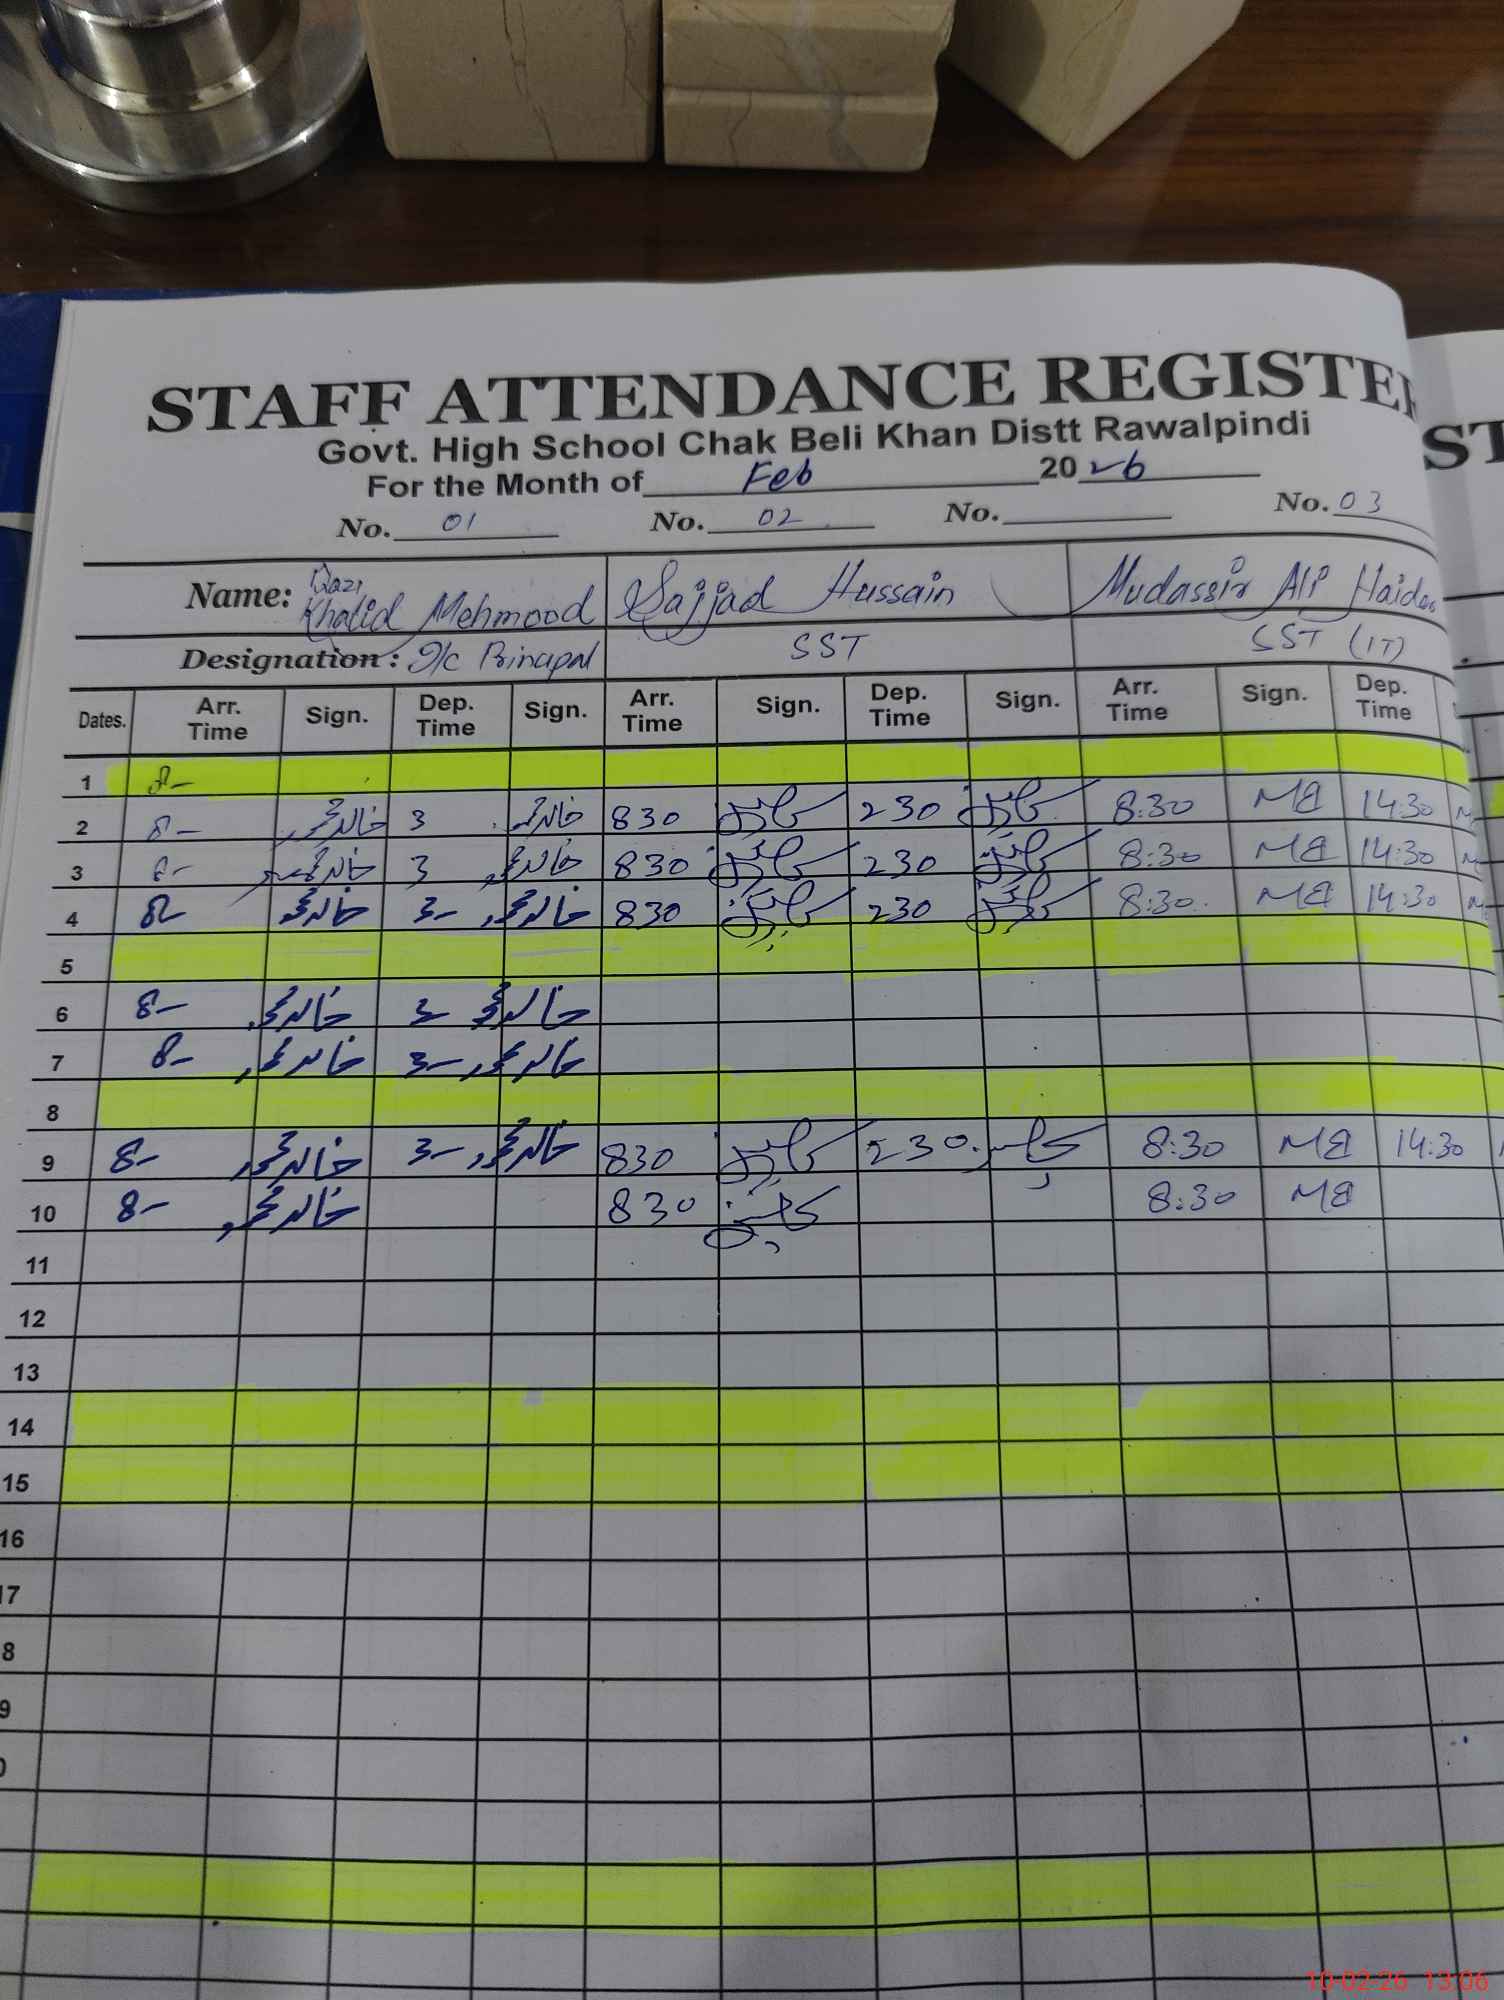 STAFF ATTENDANCE REGISTER
Govt. High School Chak Beli Khan Distt Rawalpindi
For the Month of Feb 2026
No. 01 No. 02 No. No. 03
Name: Qazi Khalid Mehmood Sajjad Hussain Mudassir Ali Haider
Designation: I/C Principal SST SST (IT)
Dates. Arr. Time Sign. Dep. Time Sign. Arr. Time Sign. Dep. Time Sign. Arr. Time Sign. Dep. Time
1 8-
2 8- خالد محمود 3 خالد محمود 830 230 8:30 14:30
3 8- خالد محمود 3 خالد محمود 830 230 8:30 14:30
4 8- خالد محمود 3- خالد محمود 830 230 8:30 14:30
5
6 8- خالد محمود 3- خالد محمود
7 8- خالد محمود 3- خالد محمود
8
9 8- خالد محمود 3- خالد محمود 830 230 8:30 14:30
10 8- خالد محمود 830 8:30
11
12
13
14
15
16
17
8
9
0
ST
10-02-26 13:06